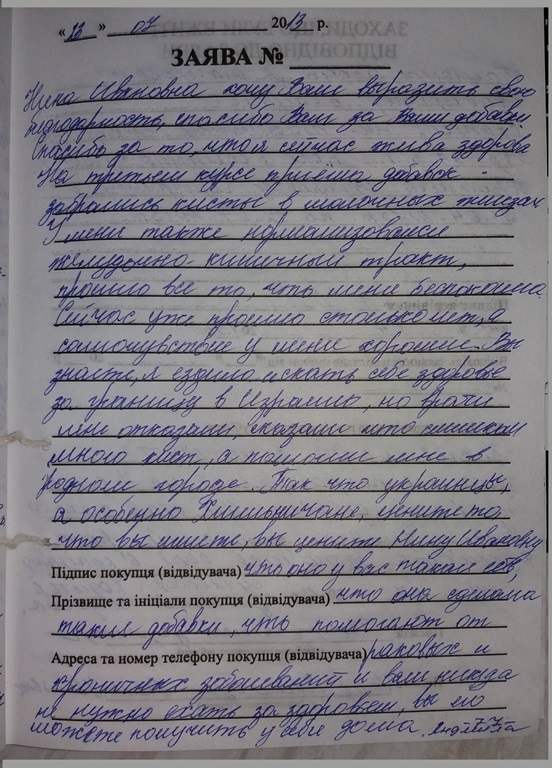 « 12 » 07 2013 р.
ЗАЯВА №
Нина Ивановна хочу Вам выразить свою
благодарность, спасибо Вам за Ваши добавки
Спасибо за то, что я сейчас жива здорова
На третьем курсе приёма добавок -
забрались кисты в молочных железах
У меня также нормализовался
желудочно кишечный тракт,
прошло все то, что меня беспокоило.
Сейчас уже прошло столько лет, а
самочувствие у меня хорошее. Вы
знаете, я ездила искать себе здоровье
за границу в Израиль, но врачи
мне отказали, сказали что слишком
много кист, а помогли мне в
родном городе. Так что украинцы,
а особенно Хмельничане, цените то
что вы имеете, вы цените Нину Ивановну
Підпис покупця (відвідувача) что она у вас такая есть,
Прізвище та ініціали покупця (відвідувача) что она сделала
такие добавки, что помогают от
Адреса та номер телефону покупця (відвідувача) раковых и
хроничных заболеваний и вам никуда
не нужно ехать за здоровьем, вы его
можете получить у себя дома.